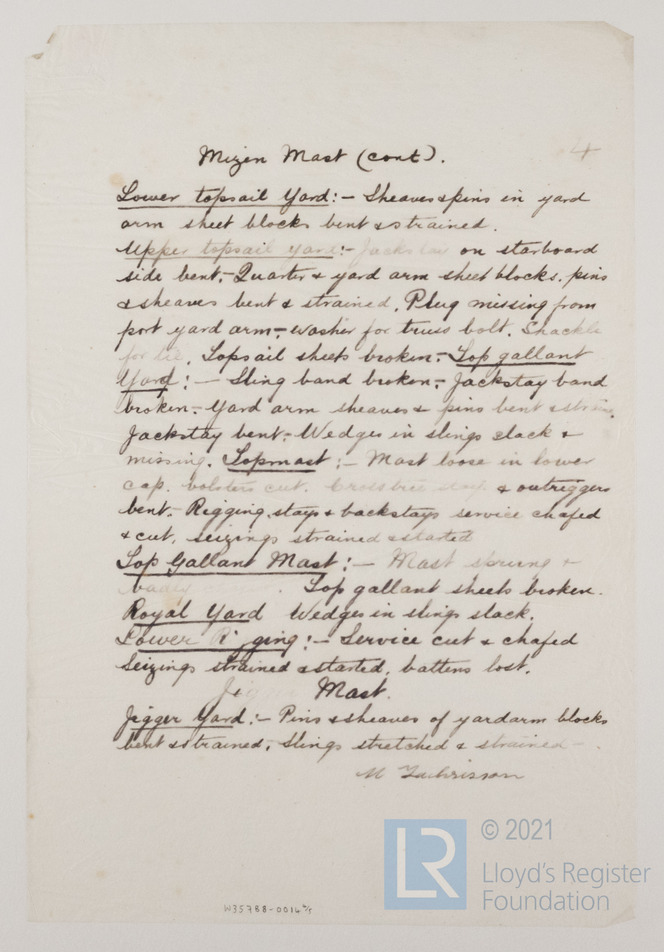 4
Mizen Mast (cont).
Lower topsail Yard:- Sheaves & pins in yard
arm sheet blocks bent & strained.
Upper topsail yard:- Jackstay on starboard
side bent,- Quarter & yard arm sheet blocks, pins
& sheaves bent & strained, Plug missing from
port yard arm,- washer for truss bolt. Shackle
for tie, Topsail sheets broken,- Top gallant
Yard:- Sling band broken,- Jackstay band
broken,- Yard arm sheaves & pins bent & strained
Jackstay bent,- Wedges in slings slack &
missing. Topmast:- Mast loose in lower
cap, bolsters cut. Crosstree & outriggers
bent,- Rigging, stays & backstays service chafed
& cut, seizings strained & started
Top Gallant Mast:- Mast sprung &
badly Top gallant sheets broken.
Royal Yard Wedges in slings slack.
Lower Rigging:- Service cut & chafed
Seizings strained & started, battens lost.
Jigger Mast.
Jigger Yard:- Pins & sheaves of yardarm blocks
bent & strained, Slings stretched & strained -
M Zachrisson
W3578B-0016
LR
© 2021
Lloyd's Register
Foundation